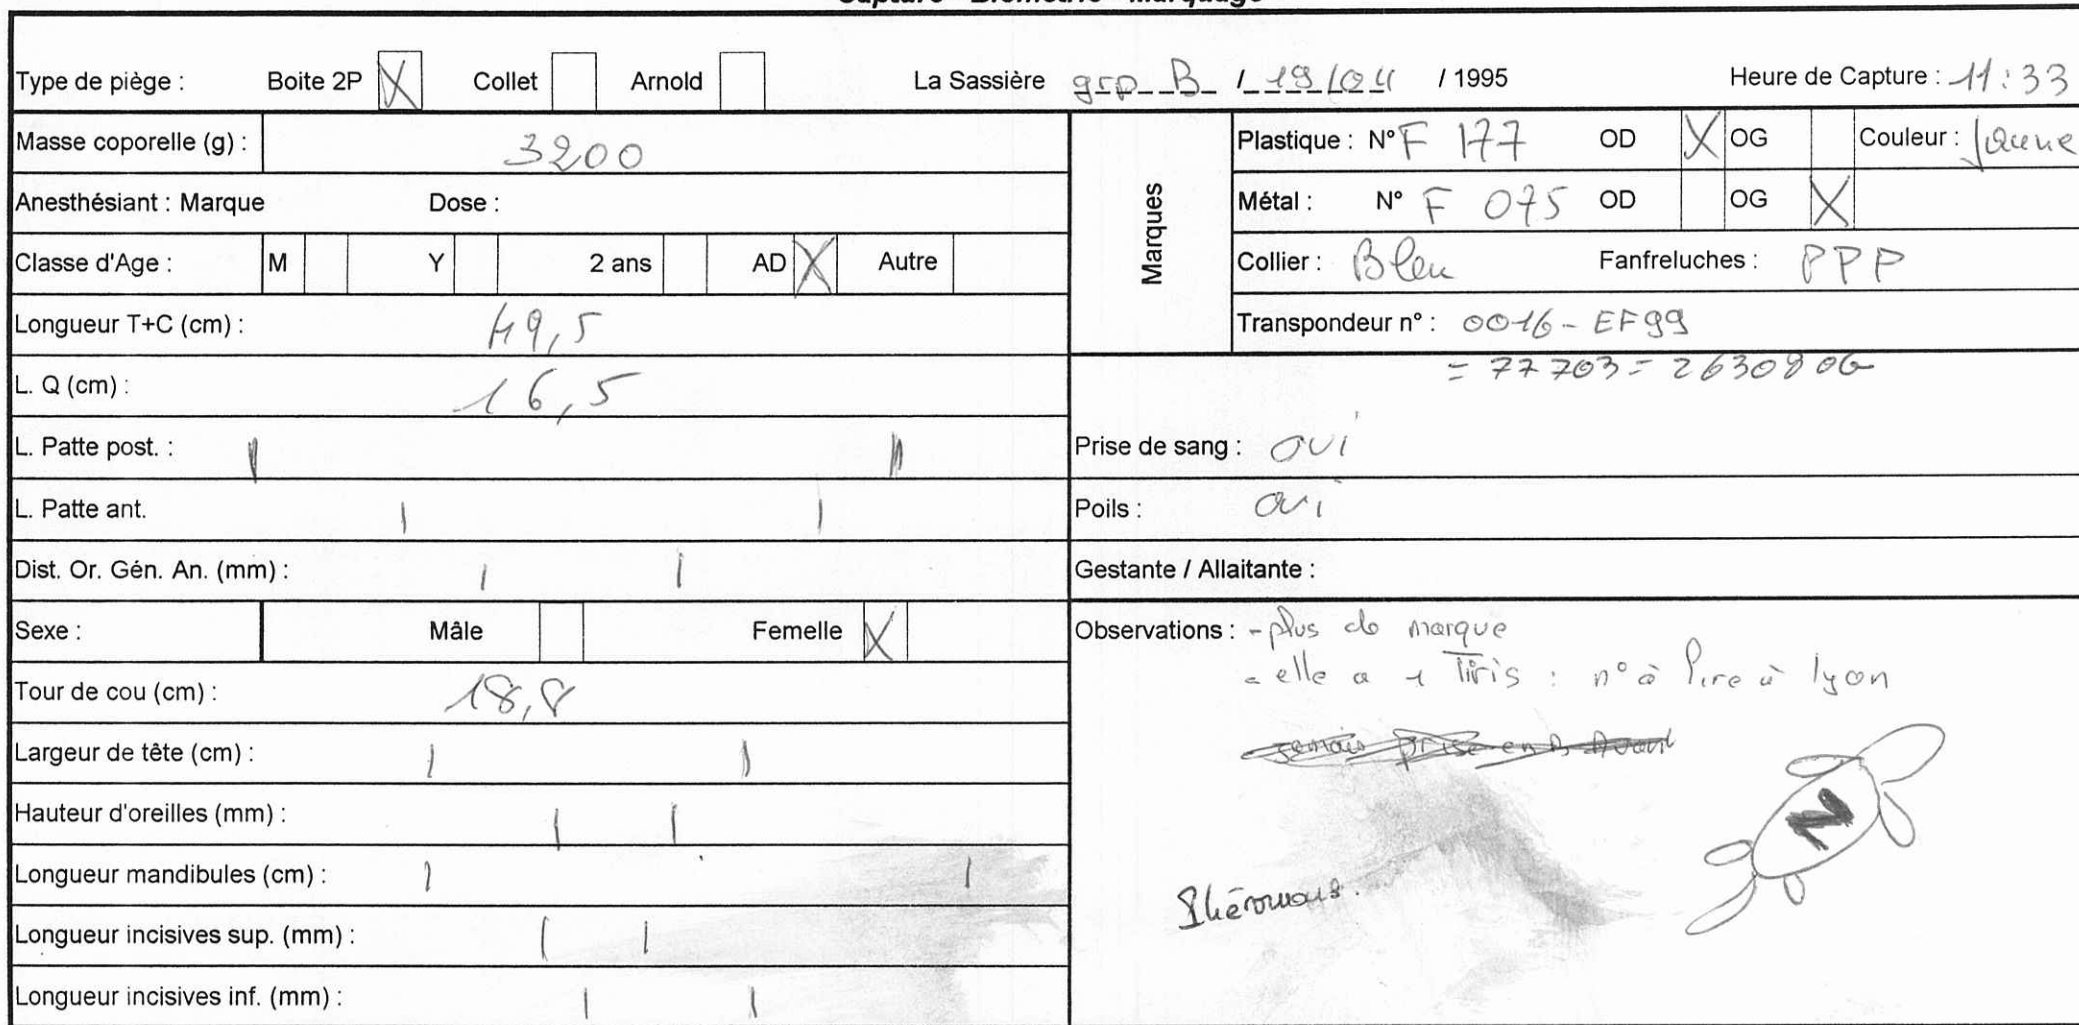 Capture - Biométrie - Marquage
Type de piège : Boite 2P X Collet Arnold La Sassière grp B / 19/04 / 1995 Heure de Capture : 11:33
Masse coporelle (g) : 3200
Anesthésiant : Marque Dose :
Classe d'Age : M Y 2 ans AD X Autre
Longueur T+C (cm) : 49,5
L. Q (cm) : 16,5
L. Patte post. :
L. Patte ant.
Dist. Or. Gén. An. (mm) :
Sexe : Mâle Femelle X
Tour de cou (cm) : 18,8
Largeur de tête (cm) :
Hauteur d'oreilles (mm) :
Longueur mandibules (cm) :
Longueur incisives sup. (mm) :
Longueur incisives inf. (mm) :
Marques
Plastique : N° F 177 OD X OG Couleur : Jaune
Métal : N° F 075 OD OG X
Collier : Bleu Fanfreluches : PPP
Transpondeur n° : 0016-EF99
= 77703 =
Prise de sang : oui
Poils : oui
Gestante / Allaitante :
Observations : - plus de marque
- elle a 1 Tiris : n° à lire à lyon
jamais prise en Avril
N